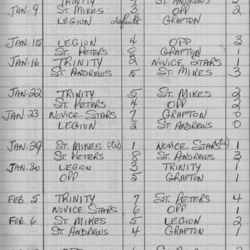 TRINITY ST. ANDREWS
JAN. 9 ST. MIKES 3 OPP 2
LEGION default GRAFTON
JAN. 15 LEGION 4 OPP 3
ST. PETERS 8 GRAFTON 1
JAN. 16 TRINITY 2 NOVICE STARS
ST. ANDREWS 5 ST. MIKES 3
JAN. 22 TRINITY 5 ST. MIKES 2
ST. PETERS 4 OPP 2
JAN. 23 NOVICE STARS 7 GRAFTON 0
LEGION 3 ST. ANDREWS 0
JAN. 29 ST. MIKES (tie) NOVICE STARS (tie)
ST. PETERS 8 ST. ANDREWS 3
JAN. 30 LEGION 3 TRINITY 1
OPP 5 GRAFTON 1
FEB. 5 TRINITY 7 ST. PETERS 4
NOVICE STARS 6 OPP 1
FEB. 6 ST. MIKES 5 LEGION
ST. ANDREWS GRAFTON